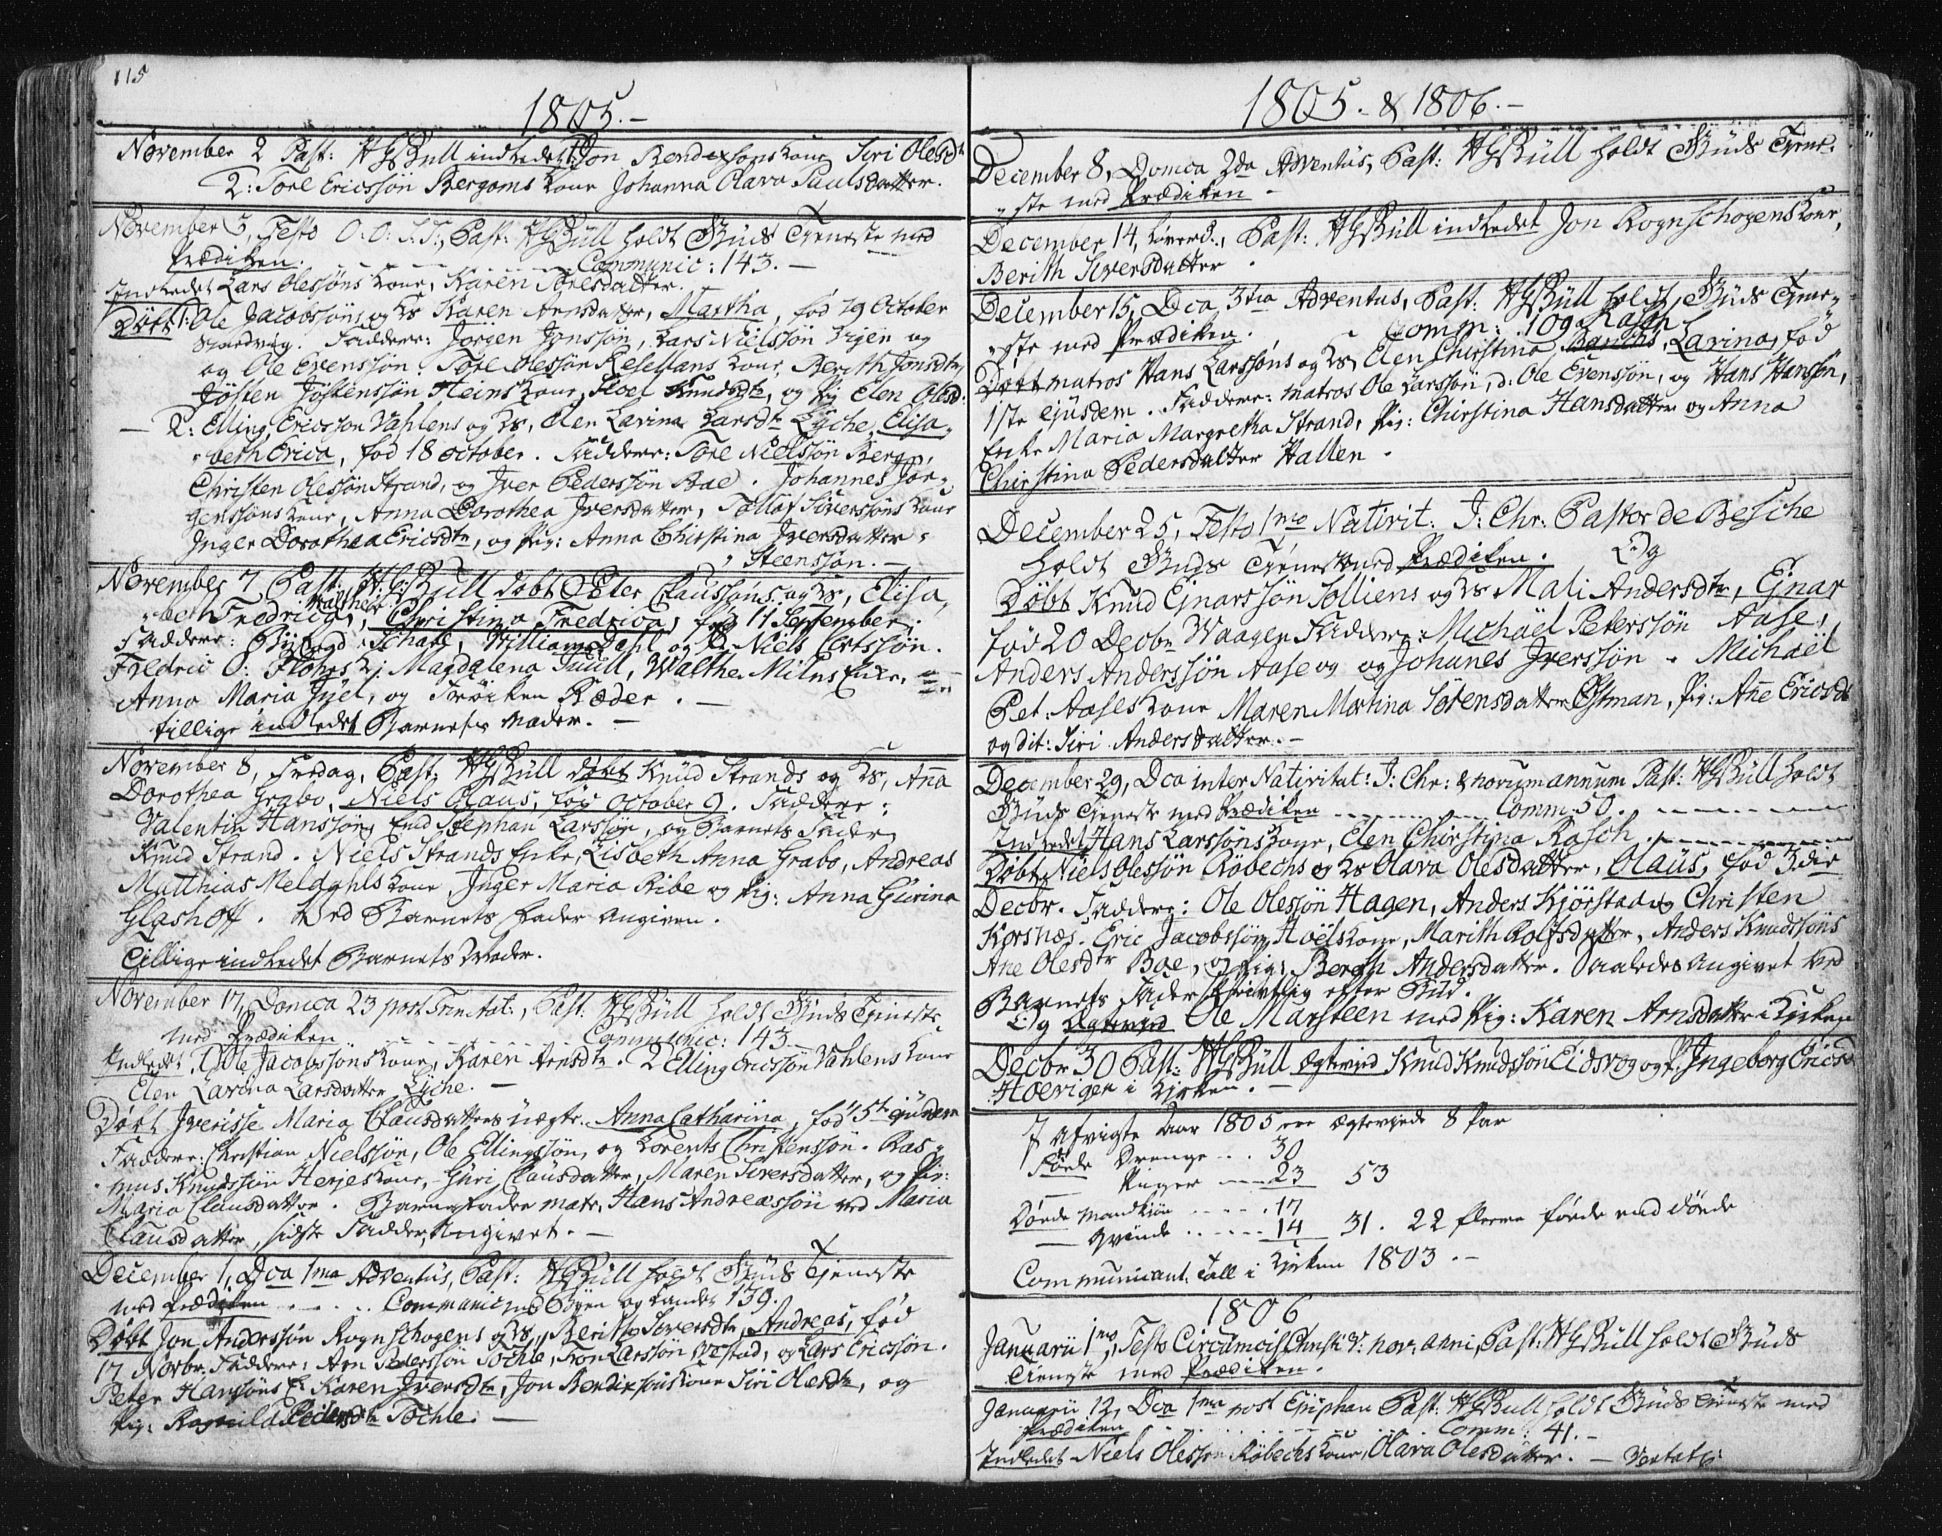 115
1805.-
November 2 Past: HGBull indledet Jon Bendixsøns kone Siri Olesdtr
2: Tore Ericssøn Bergems kone Johanna Olava Paulsdatter.
November 3, Festo O: O: S. S., Past: HGBüll holdt Guds Tjeneste med
Prædiken. Communic: 143.-
Indledet Lars Olessøns kone, Karen Toresdatter.
Døbt 1: Ole Jacobssøns og Ks Karen Arnsdatter, Martha, fød 29 October
Faddere: Jørgen Jonssøn, Lars Nielssøn Vigen og
og Ole Evenssøn. Tore Olessøn Resellans kone, Berith Jonsdtr,
Jøsten Jøstenssøn Heins kone, Knudsdtr, og Pig Elen Olesd:
2: Elling Ericsson Vahlens og Ks, Elen Lavina Larsdtr Lyche, Elisa,
beth Erica, fød 18 October. Faddere: Tore Nielssøn Berg,
Christen Olessøn Strand, og Iver Pederssøn Aae. Johannes Jør-
genssøns kone, Anna Dorothea Iversdatter, Tollof Siverssøns kone
Inger Dorothea Ericsdtr, og Pig: Anna Christina Iversdatter
Steenssøn.-
November 7 Past: HGBüll døbt Peter Claussøns og Ks, Elisa,
beth Fredrica, Walthe Christina Fredrica, fød 11 September.
Faddere: Schard, William Dahl og Niels Cortssøn.
Fredric O: Flohrs K: Magdalena Juell, Walthe Milns Enke,
Anna Maria, og Frøiken Ræder.-
tillige indledet Barnets Moder.-
November 8, Fredag, Past: HGBüll døbt Knud Strands og Ks, Anna
Dorothea Grabo, Niels Claus, fød October 9. Faddere:
Valentin Hanssøn, Stephan Larssøn, og Barnets Fader
Knud Strand. Niels Strands Enke, Lisbeth Anna Grabo, Andreas
Matthias Meldahls kone Inger Maria Ribe og Pig: Anna Gurina
Glashoff. Ved Barnets Fader Angiven.
Tillige indledet Barnets Moder.
November 17, Domca 23 post Trinitat:, Past: HGBüll holdt Guds Tjeneste
med Prædiken Communic: 143.-
Indledet 1 Ole Jacobssøns kone, Karen Arnsdtr. 2 Elling Ericssøn Vahlens kone
Elen Lavina Larsdatter Lyche.-
Døbt Maria Clausdatters uægte, Anna Catharina, fød 5te ejusdem
Faddere: Christian Nielssøn, Ole Ellingssøn, og Lorents Christenssøn. Ras-
mus Knudssøn Herjes kone, Guri Clausdatter, Maren Siversdatter, og Pig:
Maria Clausdatter. Barnefader matr. Hans Andreassøn ved Maria
Clausdatter, sidste Fadder, Angivet.-
December 1, Dca 1ma Adventus, Past: HGBüll holdt Guds Tjeneste
med Prædiken Communic med Byen og Landet 139.
Døbt Jon Anderssøn Rognschogens og Ks, Berith Siversdtr, Andreas, fød
17 Novbr. Faddere: Arn Pederssøn Tøchle, Tron Larssøn Øvstad, og Lars Ericsøn.
Peter Hanssøns E. Karen Iversdtr, Jon Bendixsøns kone Siri Olesdtr, og
Pig: Ragnild Pedersdtr Tøchle.-
1805.- & 1806.-
December 8, Domca 2da Adventus, Past: HGBüll holdt Guds Tjene-
ste med Prædiken-
December 14, Løverd:, Past: HGBüll indledet Jon Rognschogens kone,
Berith Siversdatter.
December 15, Dca 3tia Adventus, Past: HGBüll holdt Guds Tjene-
ste med Prædiken. Comm: 109. Rasch
Døbt matros Hans Larssøns og Ks, Elen Christina, Lavina, fød
1ste ejusdem. Faddere: matros Ole Larssøn, d: Ole Evenssøn, og Hans Hansøn,
Enke Maria Margretha Strand, Pig: Christina Hansdatter og Anna
Christina Pedersdatter Hallen.
December 25, Festo 1mo Nativit: J: Chr: Pastor de Besche
holdt Guds Tjeneste med Prædiken.
Døbt Knud Ejnarssøn Solliens og Ks Mali Andersdtr, Ejnar
fød 20 Decbr Waagen Faddere: Michäel Peterssøn Aase,
Anders Anderssøn Aase og og Johanes Iverssøn. Michäel
Pet: Aases kone Maren Martina Sørensdatter Østman, Pig: Ane Ericsdt
og dit: Siri Andersdatter.-
December 29, Dca inter Nativitat: J: Chr: & novum annum Past: HGBüll holdt
Guds Tjeneste med Prædiken Comm 50.
Indledet Hans Larssøns kone, Elen Christina Rasch.
Døbt Niels Olessøn Røbechs og Ks Olava Olesdatter, Olaüs, fød 3die
Decbr. Faddere: Ole Olessøn Hagen, Anders Kjørstad og Christen
Korsnæs. Eric Jacobssøn Hoëls kone, Marith Rolfsdatter, Anders Knudssøns
Ane Olesdtr Boe, og Pig: Bereth Andersdatter. Saaledes Angivet ved
Barnets Fader skrivtlig efter Bud.
Ole Marsteen med Pig: Karen Arnsdatter i Kirken
Decbr 30 Past: HGBüll Ægteviet Knud Knudssøn Eidsvog og P. Ingeborg Ericsd
Hoevigen i Kirken.-
I Afvigte Aar 1805 ere Ægteviede 8 Par
Føde Drenge .... 30
Piger 23 53
Døede Mandkiøn ..... 17
Qvinde ...... 14 31. 22 fleere fødde end døde
Communicant. Tall i Kirken 1803.-
1806
Januarii 1mo, Festo Circumcis Christi & nov: anni, Past: HGBüll holdt Guds
Tjeneste med Prædiken.
Januarii 12, Dca 1ma post Epiphan Past: HGBüll holdt Guds Tjeneste med
Prædiken Comm: 41.-
Indledet Niels Olessøn Røbechs kone, Olava Olesdatter.- Vertatur